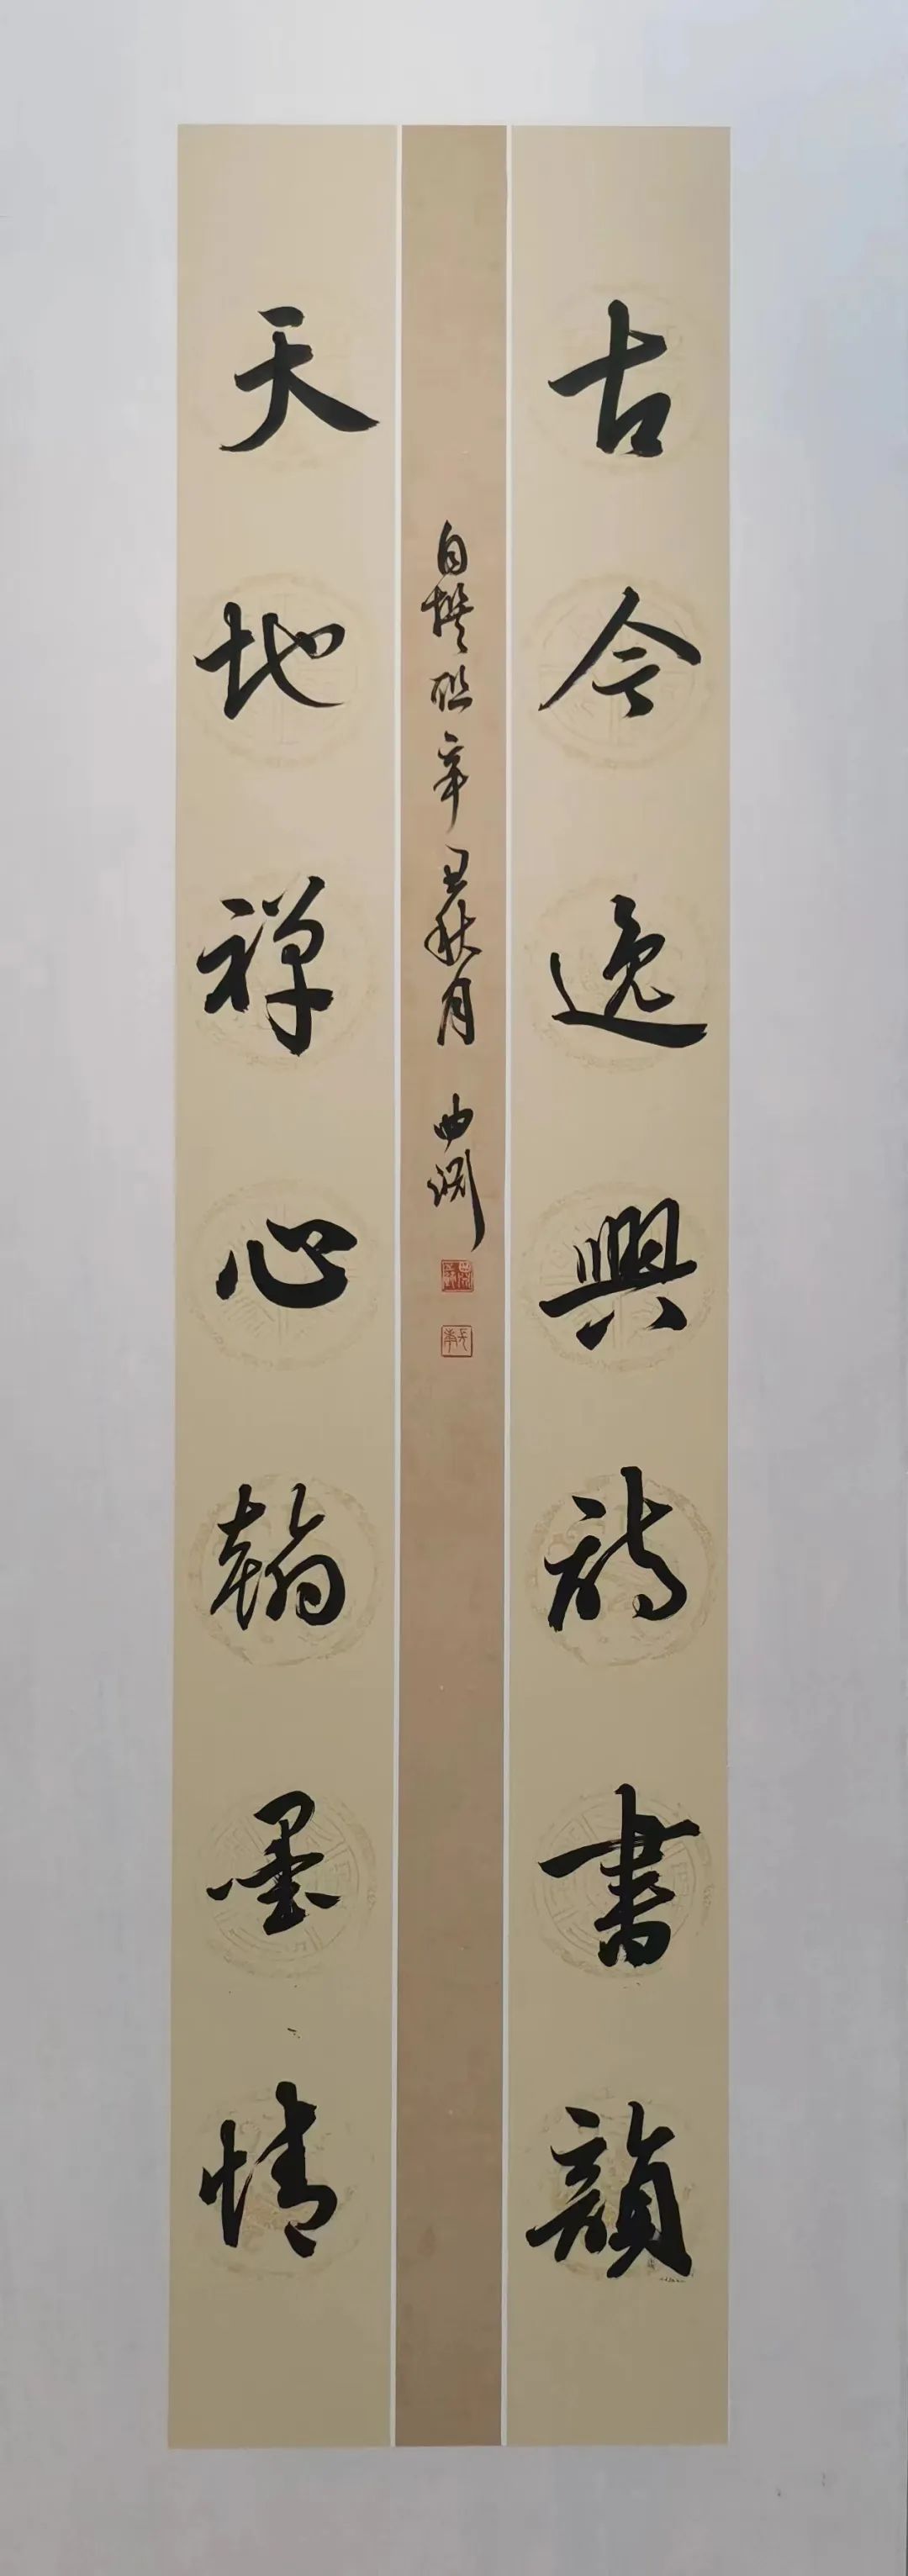 古今逸興詩書韻
自撰联辛丑秋月 曲渊
天地禅心翰墨情